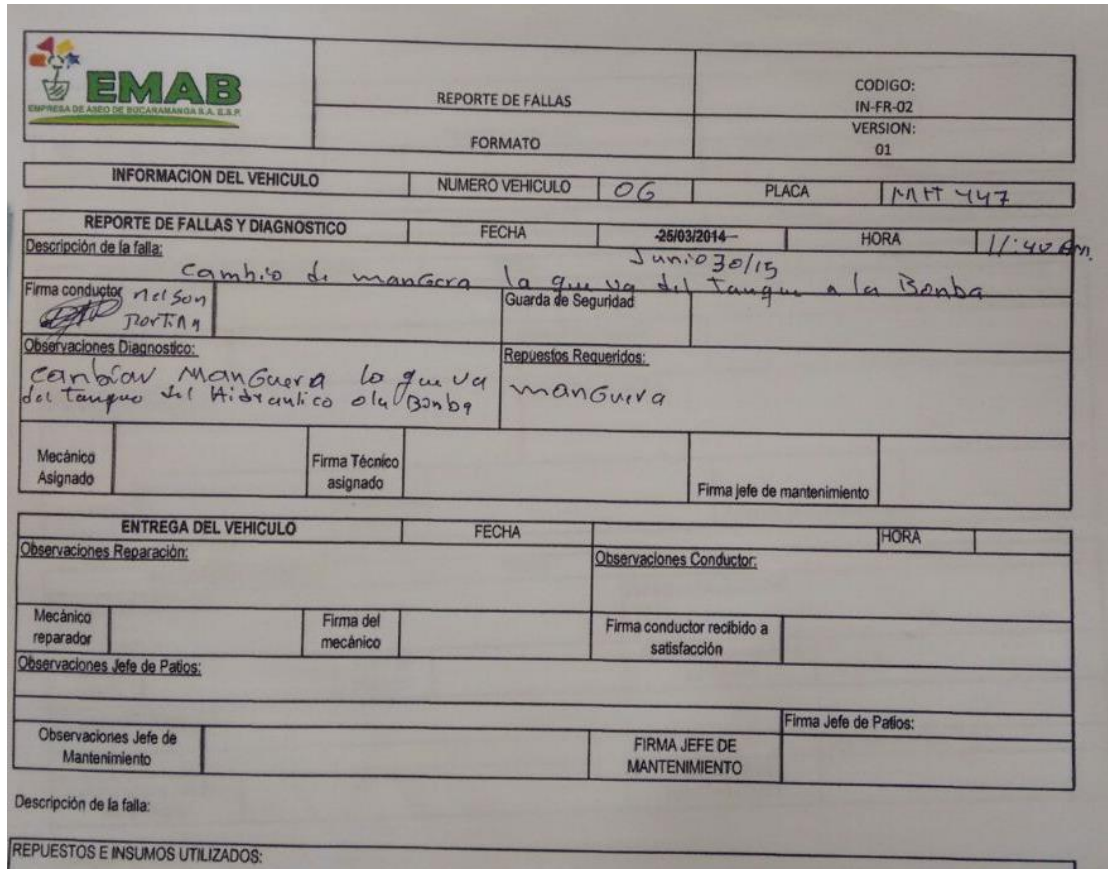 EMAB
EMPRESA DE ASEO DE BUCARAMANGA S.A. E.S.P.
REPORTE DE FALLAS
FORMATO
CODIGO:
IN-FR-02
VERSION:
01
INFORMACION DEL VEHICULO NUMERO VEHICULO 06 PLACA 447
REPORTE DE FALLAS Y DIAGNOSTICO FECHA 25/03/2014 HORA 11:40 am.
Junio 30/15
Descripción de la falla:
Cambio de mangera la que va del tanque a la Bonba
Firma conductor nelson
Guarda de Seguridad
Observaciones Diagnostico:
canbiar manGuera la que va
del tanque del Hidraulico ala Bonba
Repuestos Requeridos:
manGuera
Mecánico
Asignado
Firma Técnico
asignado
Firma jefe de mantenimiento
ENTREGA DEL VEHICULO FECHA HORA
Observaciones Reparación:
Observaciones Conductor:
Mecánico
reparador
Firma del
mecánico
Firma conductor recibido a
satisfacción
Observaciones Jefe de Patios:
Firma Jefe de Patios:
Observaciones Jefe de
Mantenimiento
FIRMA JEFE DE
MANTENIMIENTO
Descripción de la falla:
REPUESTOS E INSUMOS UTILIZADOS: